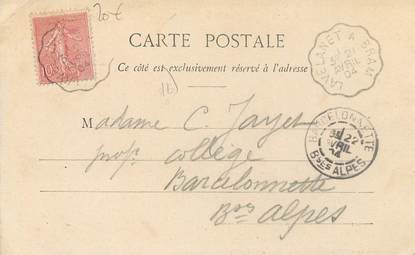 20€
CARTE POSTALE
Ce côté est exclusivement réservé à l'adresse
LAVELANET A BRAM
21
AVRIL
04
BARCELONNETTE
22
AVRIL
04
Bses ALPES
Madame C. Jayet
prof. collège
Barcelonnette
Bses Alpes